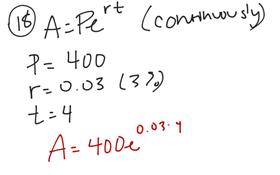 18 A = Pe^rt (continuously)
P = 400
r = 0.03 (3%)
t = 4
A = 400e^0.03·4